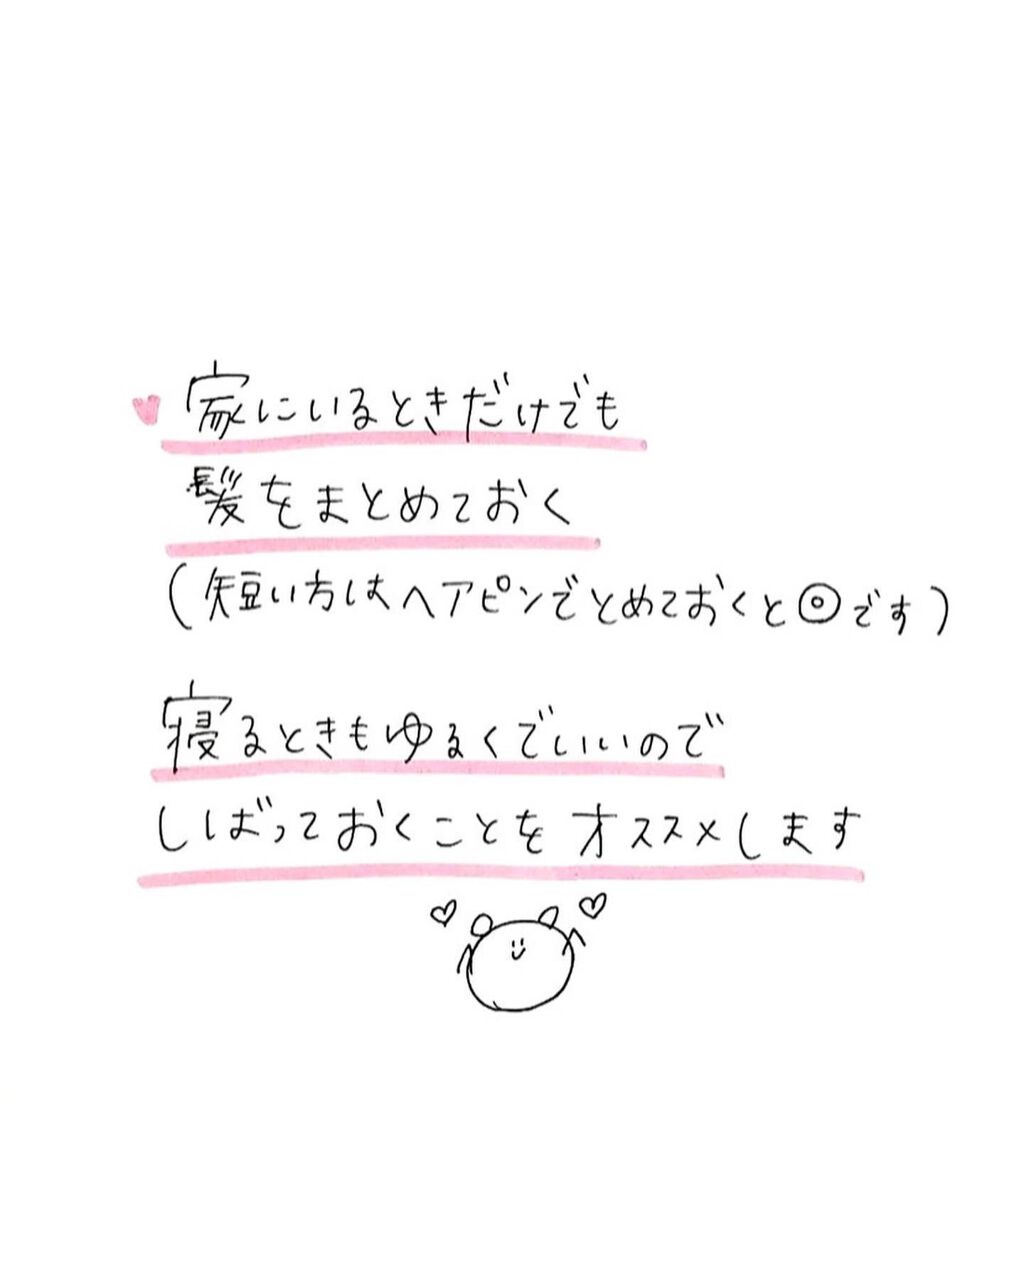 家にいるときだけでも
髪をまとめておく
(短い方はヘアピンでとめておくと◎です)
寝るときもゆるくでいいので
しばっておくことをオススメします